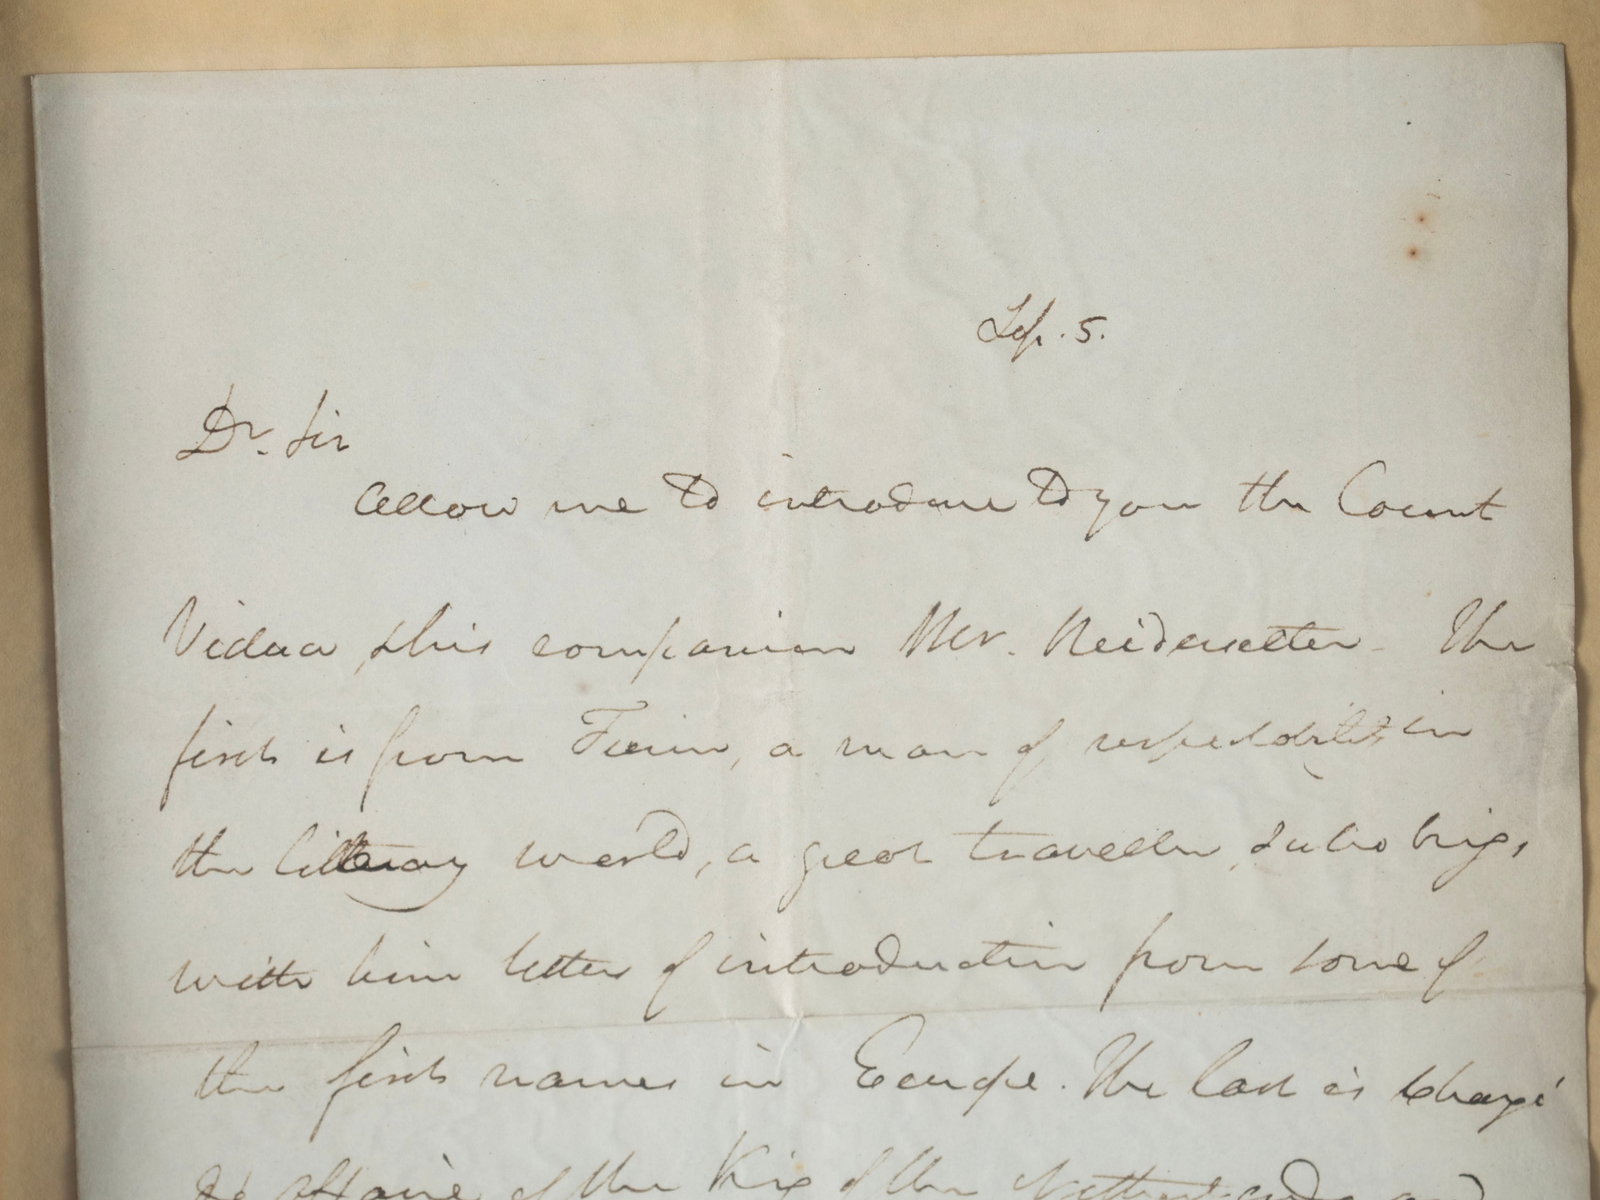 Sep. 5.
Dr. Sir
Allow me to introduce to you the Count
Vidua, & his companion Mr. Neiderstetter. The
first is from Turin, a man of respectability in
the litterary world, a great traveller, & who brings
with him letters of introduction from some of
the first names in Europe. The last is Chargé
de affaire of the King of the Netherlands and